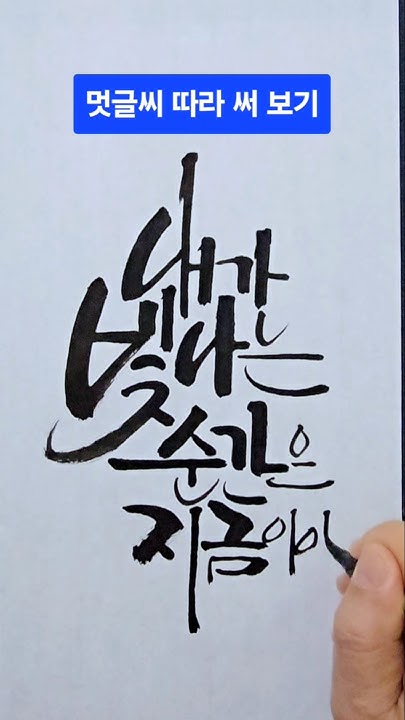 멋글씨 따라 써 보기
내가
빛나는
순간은
지금이